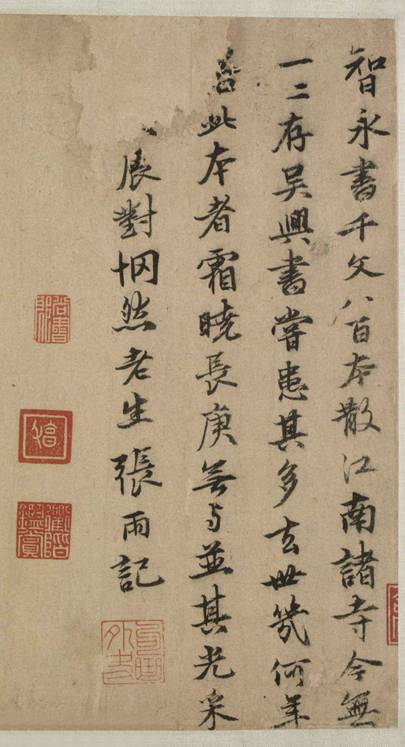 智永書千文八百本散江南諸寺今無
一二存吳興書嘗患其多去世幾何年
此本者霜曉長庚無与並其光采
展對惘然老生張雨記